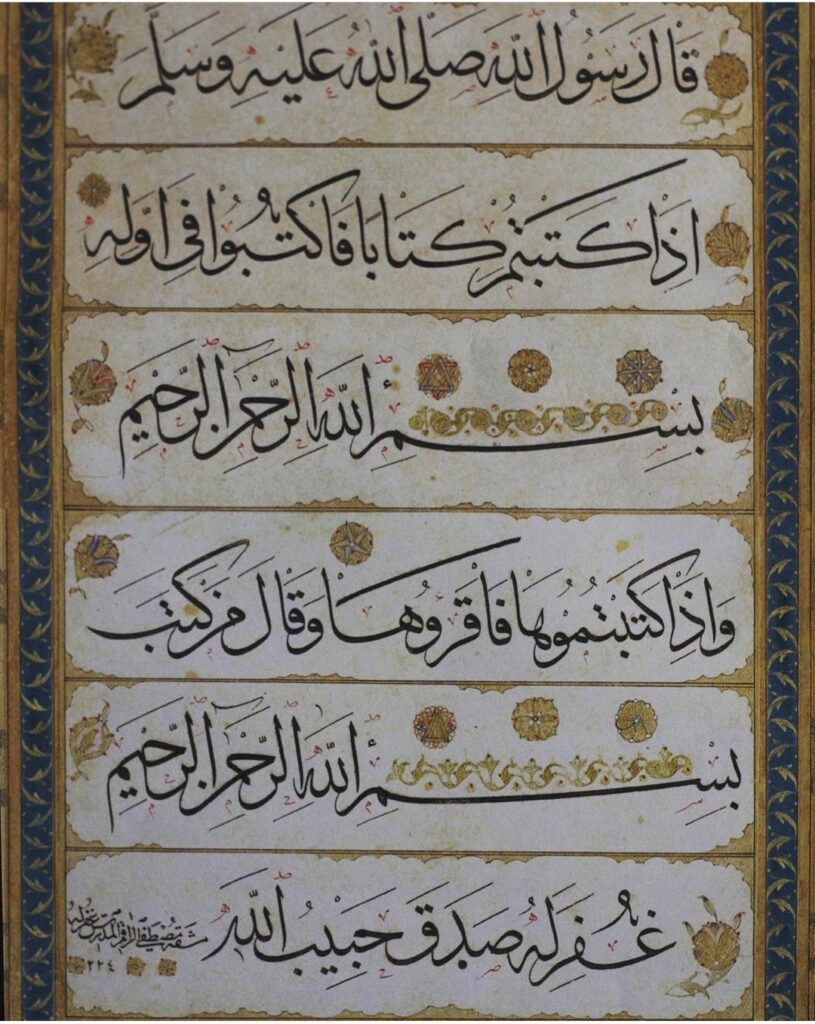 قَالَ رَسُولُ اللّٰهِ صَلَّى اللّٰهُ عَلَيْهِ وَسَلَّمَ
اِذَا كَتَبْتُمْ كِتَابًا فَاكْتُبُوا فِي اَوَّلِهِ
بِسْمِ اللّٰهِ الرَّحْمٰنِ الرَّحِيمِ
وَاِذَا كَتَبْتُمُوهَا فَاقْرَؤُهَا وَقَالَ مَنْ كَتَبَ
بِسْمِ اللّٰهِ الرَّحْمٰنِ الرَّحِيمِ
غُفِرَ لَهُ صَدَقَ حَبِيبُ اللّٰهِ
مشقه مصطفى الراقم المدرس غفر له
٢٢٤